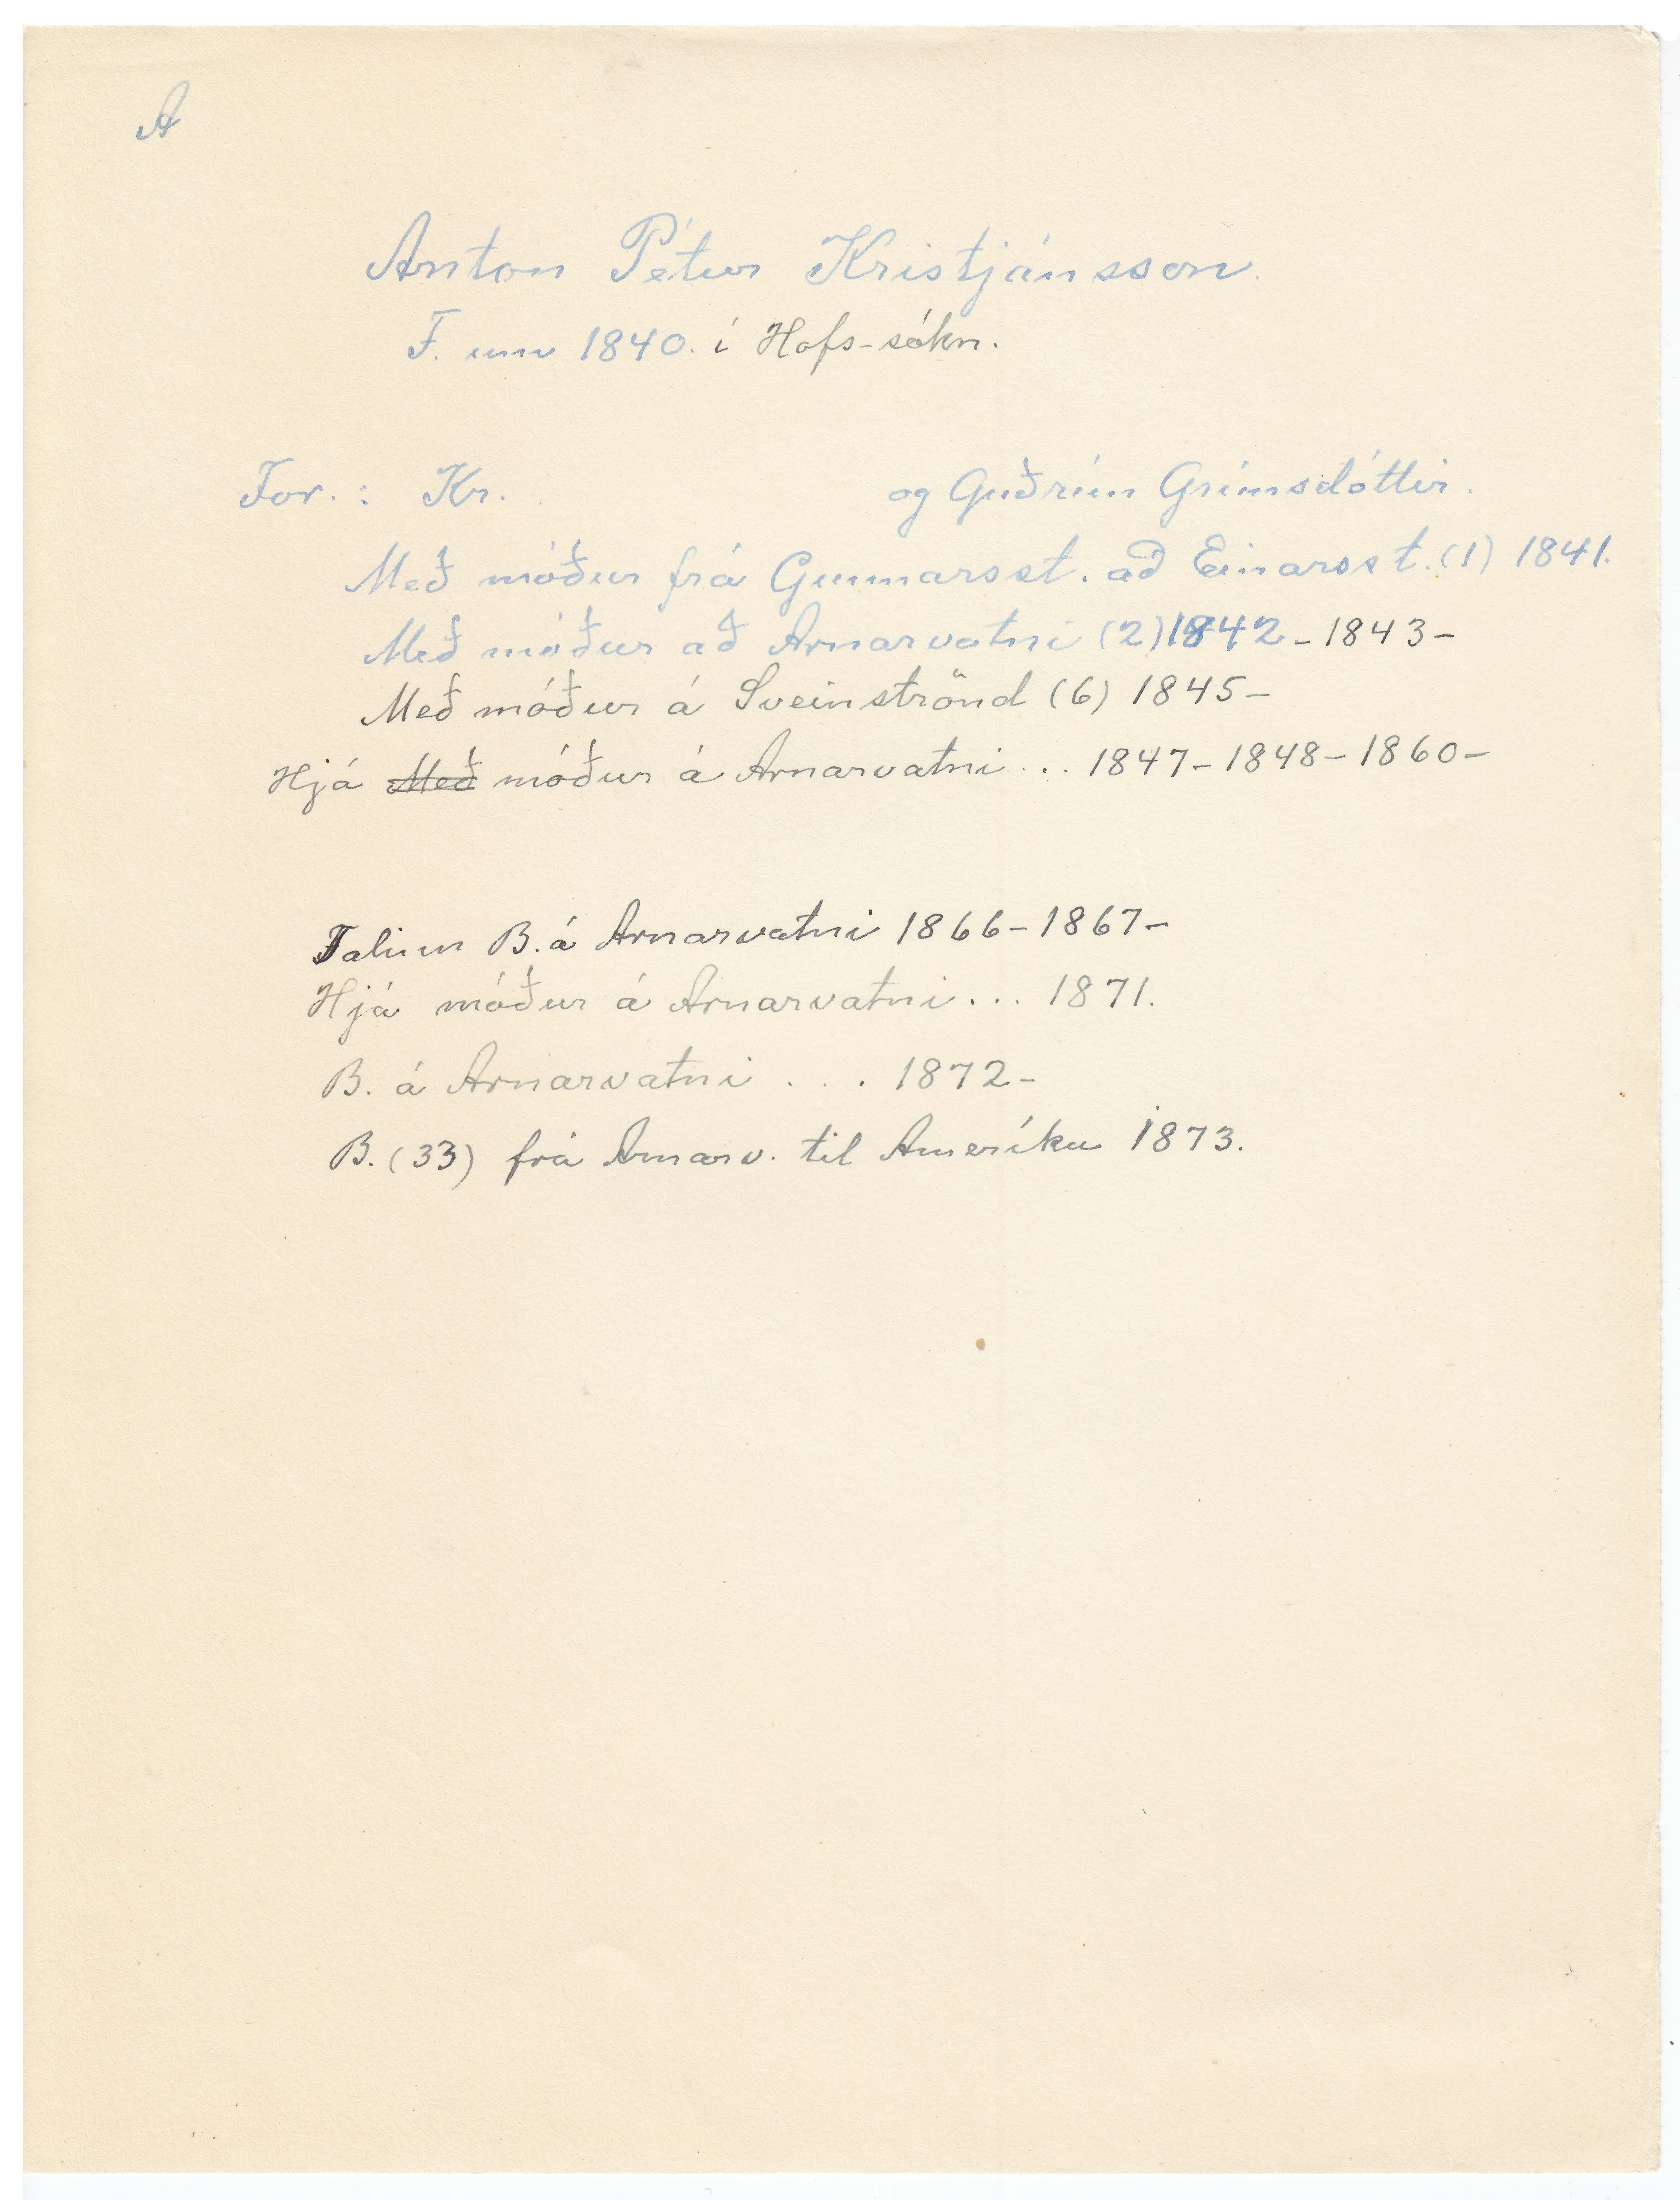 A
Anton Pétur Kristjánsson.
F. um 1840. í Hofs-sókn.
For. : Kr. og Guðrún Grímsdóttir.
Með móður frá Gunnarsst. að Einarsst. (1) 1841.
Með móður að Arnarvatni (2) 1842 - 1843 -
Með móður á Sveinströnd (6) 1845 -
Hjá Með móður á Arnarvatni . . . 1847 - 1848 - 1860 -
Talinn B. á Arnarvatni 1866 - 1867 -
Hjá móður á Arnarvatni . . . 1871.
B. á Arnarvatni . . . 1872 -
B. (33) frá Arnarv. til Ameríku 1873.